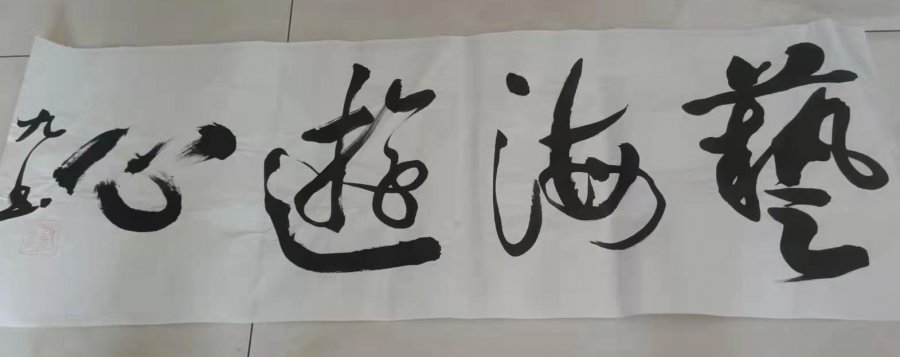 藝海遊心